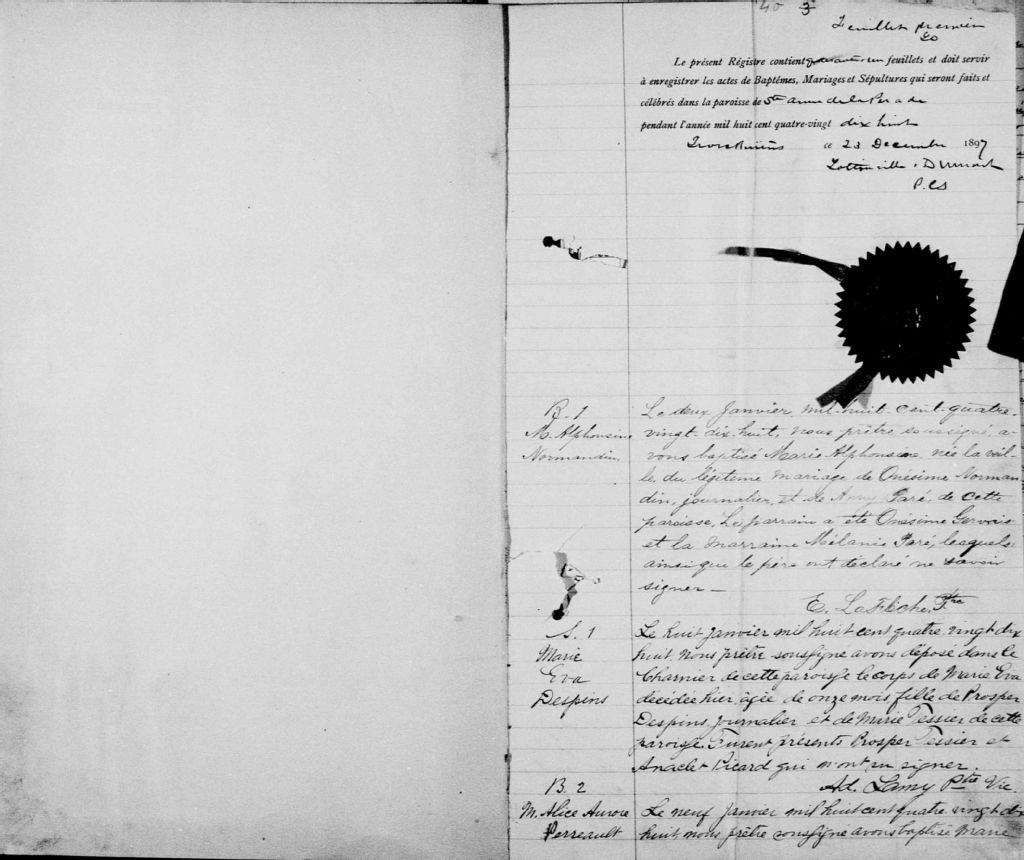 40 3
Feuillet premier
Le présent Régistre contient quarante un feuillets et doit servir
à enregistrer les actes de Baptêmes, Mariages et Sépultures qui seront faits et
célébrés dans la paroisse de Ste Anne de la Perade
pendant l'année mil huit cent quatre-vingt dix huit
Trois Rivières ce 23 Decembre 1897
P.CS
B. 1
M. Alphonsine
Normandin
Le deux Janvier, mil-huit-cent-quatre-
vingt-dix-huit, nous prêtre soussigné, a-
vons baptisé Marie Alphonsine, née la veil-
le, du légiteme mariage de Onésime Norman
din, journalier, et de Anny Paré, de cette
paroisse. Le parrain a été Onésime Gervais
et la marraine Mélanie Paré, lesquels
ainsi que le père ont déclaré ne savoir
signer _
E. LaFlèche, Ptre
S. 1
Marie
Eva
Despins
Le huit janvier mil huit cent quatre vingt dix
huit nous prêtre soussigné avons déposé dans le
Charnier de cette paroisse le corps de Marie Eva
décédée hier, agée de onze mois, fille de Prosper
Despins, journalier et de Marie Tessier de cette
paroisse. Furent présents Prosper Tessier et
Anaclet Picard qui n'ont su signer.
Ad. Lamy Ptre Vic.
B. 2
M. Alice Aurore
Perreault
Le neuf janvier mil huit cent quatre vingt dix
huit, nous prêtre soussigné avons baptisé Marie